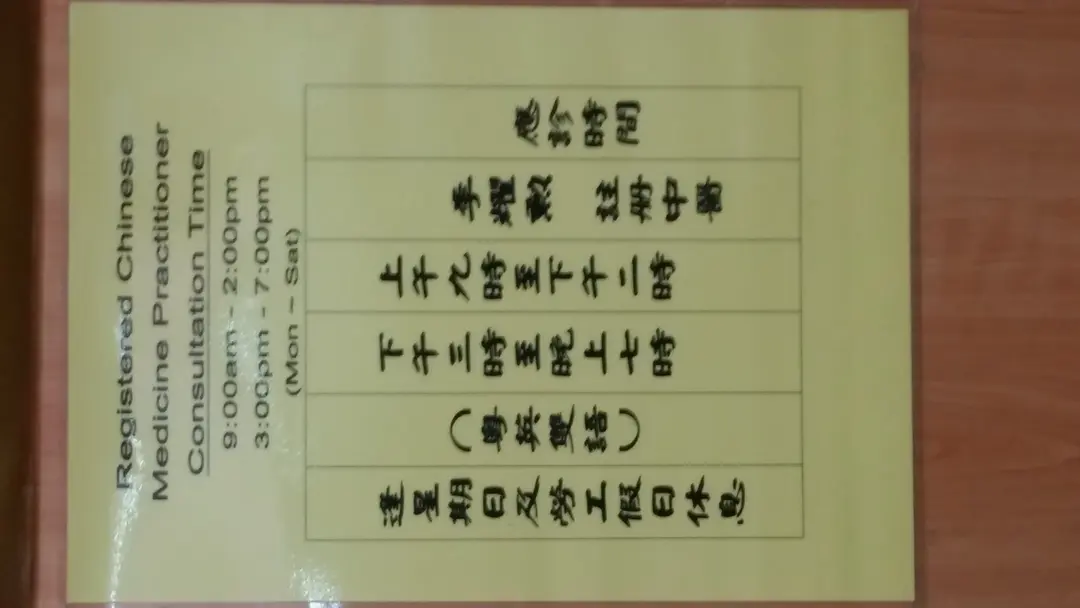 Registered Chinese
Medicine Practitioner
Consultation Time
9:00am - 2:00pm
3:00pm - 7:00pm
(Mon ~ Sat)
應診時間
李耀勳 註册中醫
上午九時至下午二時
下午三時至晚上七時
(粵英雙語)
逢星期日及勞工假日休息